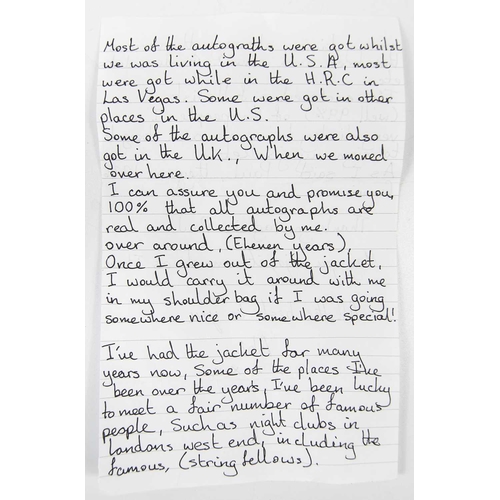 Most of the autograths were got whilst
we was living in the U.S.A, most
were got while in the H.R.C in
Las Vegas. Some were got in other
places in the U.S.
Some of the autographs were also
got in the U.K., When we moved
over here.
I can assure you and promise you,
100% that all autographs are
real and collected by me.
over around, (Eleven years),
Once I grew out of the jacket,
I would carry it around with me
in my shoulder bag if I was going
somewhere nice or somewhere special!
I've had the jacket for many
years now, Some of the places I've
been over the years, I've been lucky
to meet a fair number of famous
people, Such as night clubs in
londons west end, including the
famous, (stringfellows).